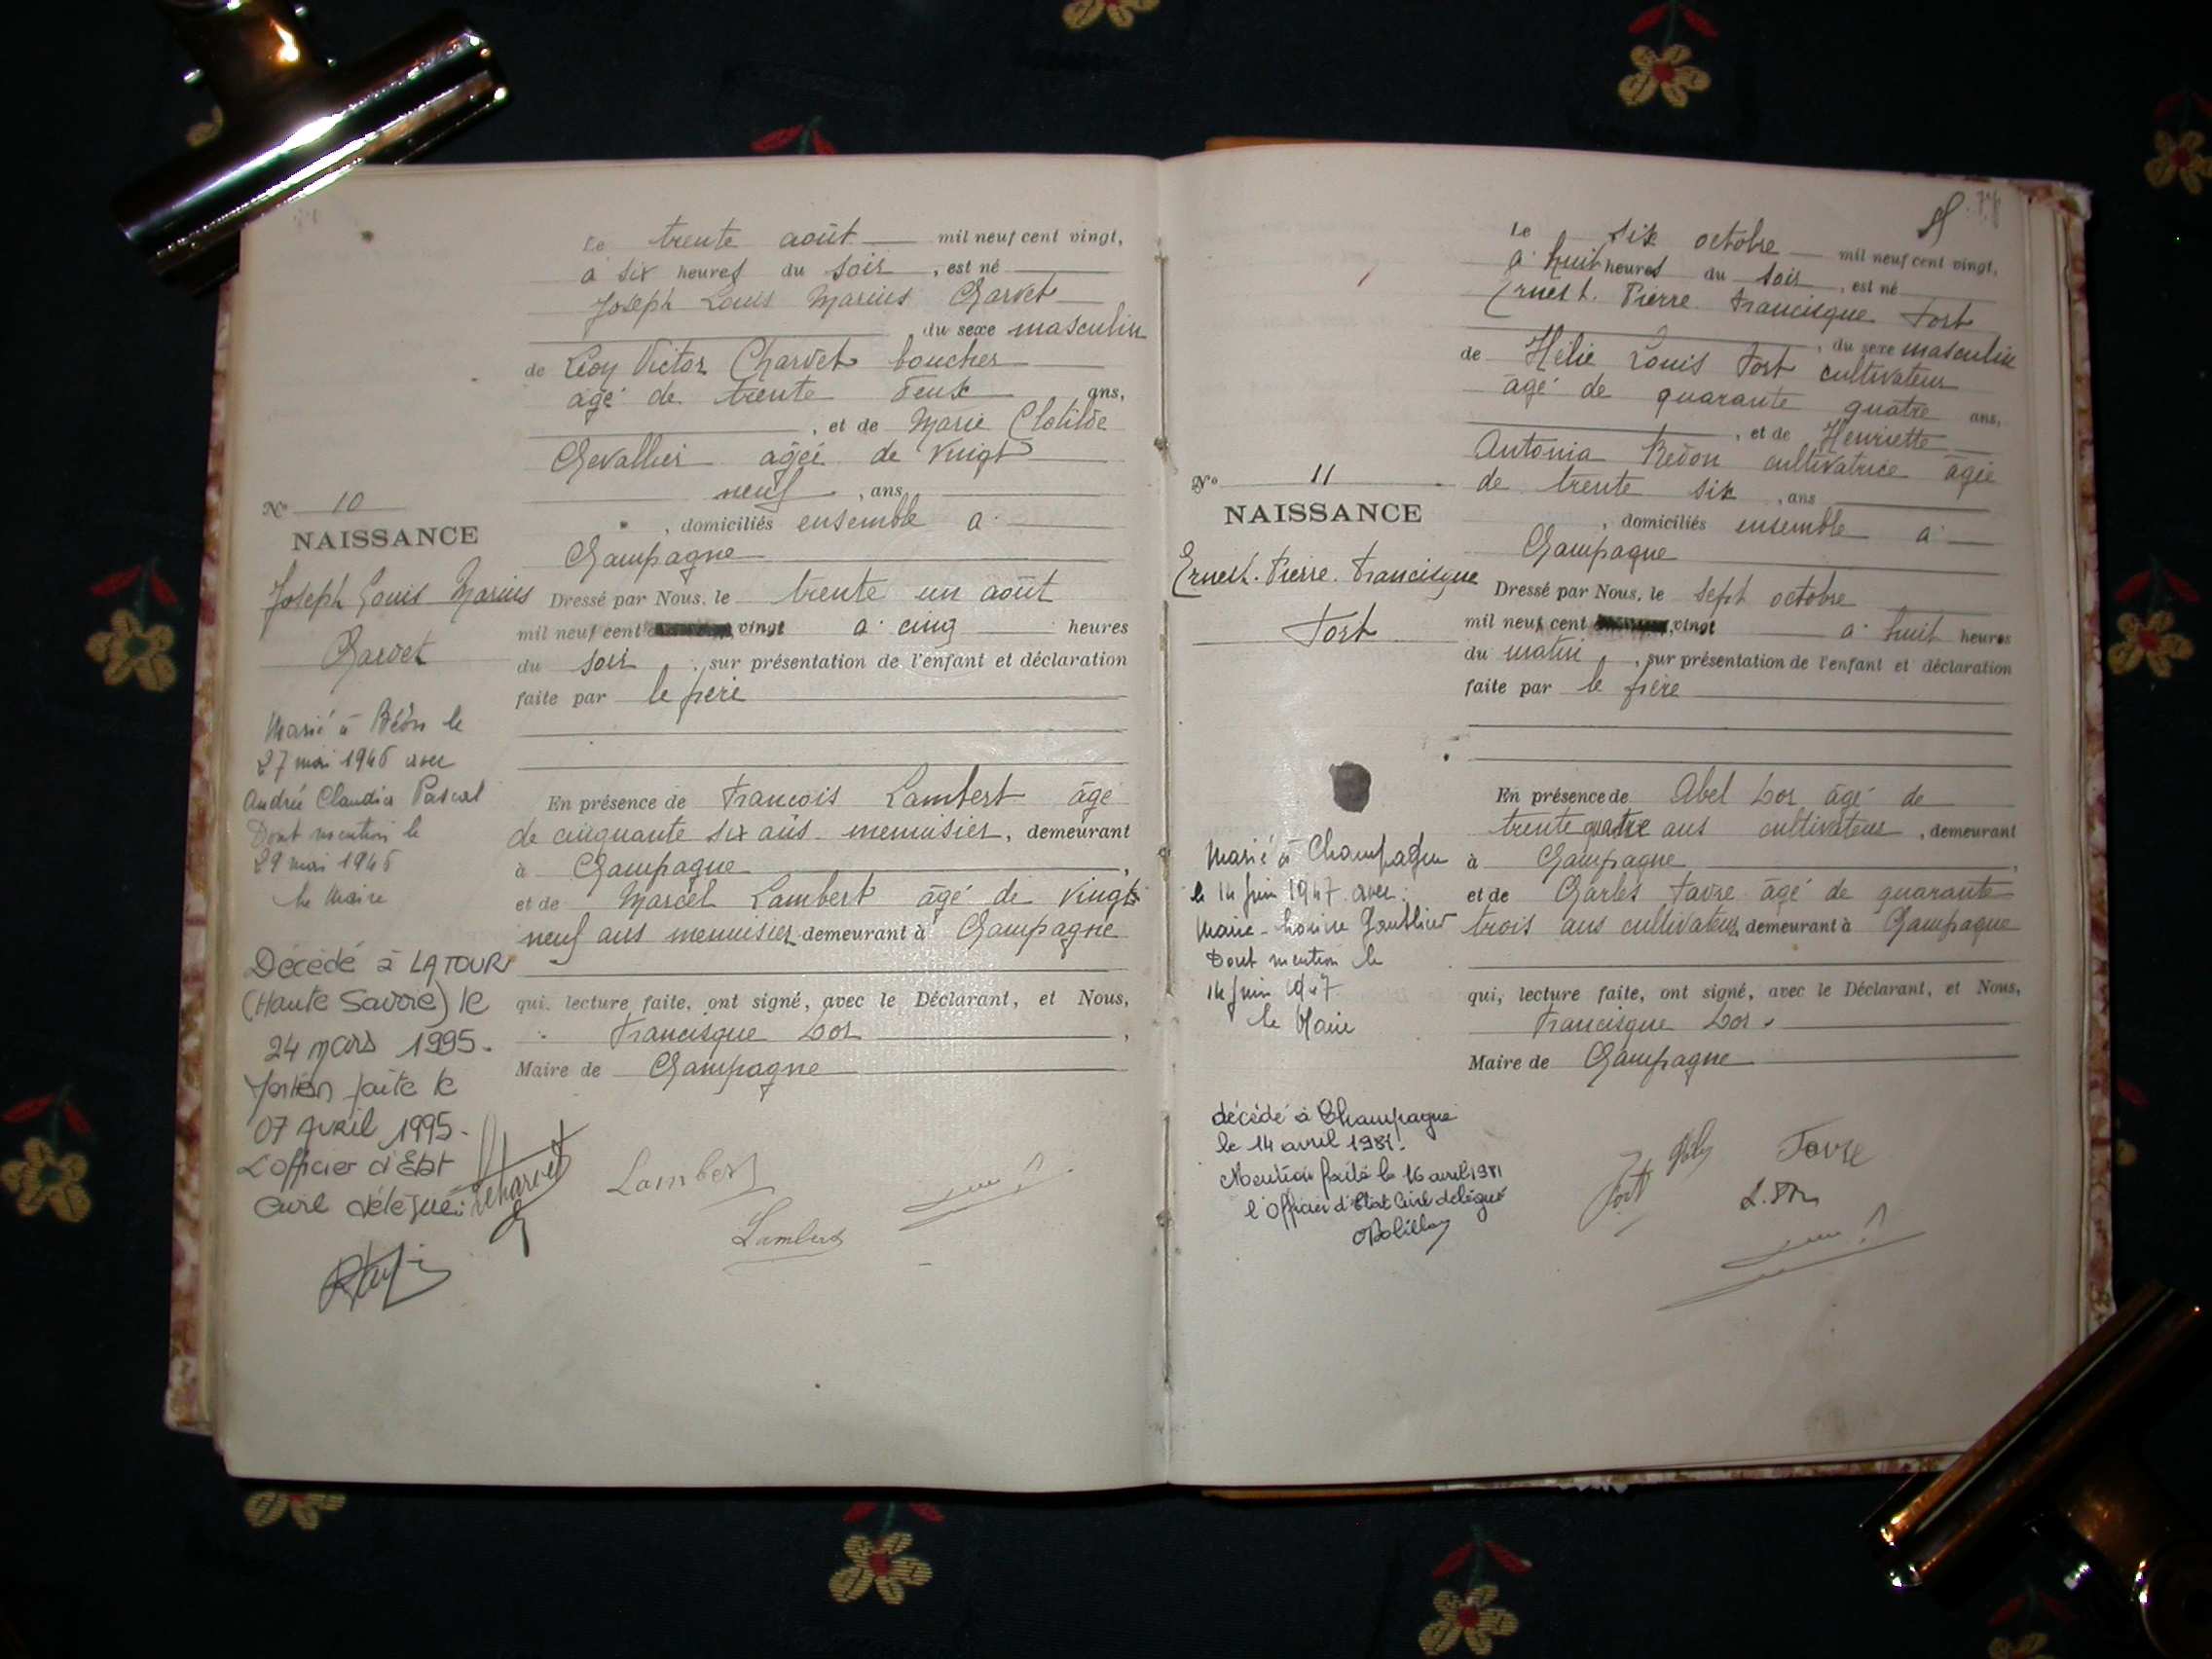 Le trente août mil neuf cent vingt,
à six heures du soir, est né
Joseph Louis Marius Charvet
du sexe masculin
de Léon Victor Charvet boucher
âgé de trente deux ans,
, et de Marie Clotilde
Chevallier âgée de vingt
neuf, ans
, domiciliés ensemble à
Champagne
Dressé par Nous, le trente un août
mil neuf cent vingt à cinq heures
du soir, sur présentation de l'enfant et déclaration
faite par le père
En présence de François Lambert âgé
de cinquante six ans menuisier, demeurant
à Champagne,
et de Marcel Lambert âgé de vingt
neuf ans menuisier demeurant à Champagne
qui, lecture faite, ont signé, avec le Déclarant, et Nous,
Francisque Dor,
Maire de Champagne
Lambert
Lambert
N° 10
NAISSANCE
Joseph Louis Marius
Charvet
Marié à Béon le
27 mai 1946 avec
Andrée Claudia Pascal
Dont mention le
29 mai 1946
le Maire
Décédé à LA TOUR
(Haute Savoie) le
24 mars 1995.
faite le
07 Avril 1995.
L'officier d'Etat
Civil délégué:
Le six octobre mil neuf cent vingt,
à huit heures du soir, est né
Ernest. Pierre Francisque Fort
, du sexe masculin
de Hélie Louis Fort cultivateur
âgé de quarante quatre ans,
, et de Henriette
Antonia Bédon cultivatrice âgée
de trente six, ans
, domiciliés ensemble à
Champagne
Dressé par Nous, le sept octobre
mil neuf cent vingt à huit heures
du matin, sur présentation de l'enfant et déclaration
faite par le père
En présence de Abel Dor âgé de
trente quatre ans cultivateur, demeurant
à Champagne,
et de Charles Favre âgé de quarante
trois ans cultivateur demeurant à Champagne
qui, lecture faite, ont signé, avec le Déclarant, et Nous,
Francisque Dor.
Maire de Champagne
Favre
Fort
N° 11
NAISSANCE
Ernest. Pierre. Francisque
Fort
Marié à Champagne
le 14 Juin 1947 avec:
Marie-Louise Gonthier
Dont mention le
14 Juin 1947
le Maire
décédé à Champagne
le 14 avril 1981.
Mention faite le 16 avril 1981
l'Officier d'Etat Civil délégué